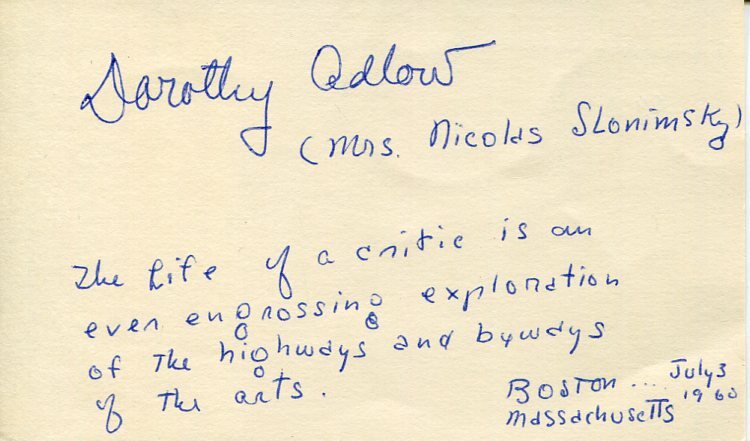 Dorothy Adlow
(Mrs. Nicolas Slonimsky)
The life of a critic is an
ever engrossing exploration
of the highways and byways
of the arts.
Boston .... July 3
Massachusetts 1960